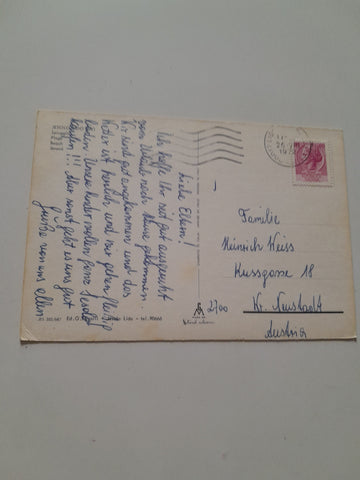 Liebe Eltern!
Ich hoffe Ihr seid gut ausgeruht
vom Urlaub nach Hause gekommen.
Wir sind gut angekommen und das
Wetter ist herrlich, und wir gehen fleißig
baden. Unsere Kinder wollen ganz Jesolo
kaufen!!! Aber sonst geht es uns gut
Grüße von uns allen
Familie
Heinrich Weiss
Kussgasse 18
2700
Wr. Neustadt
Austria